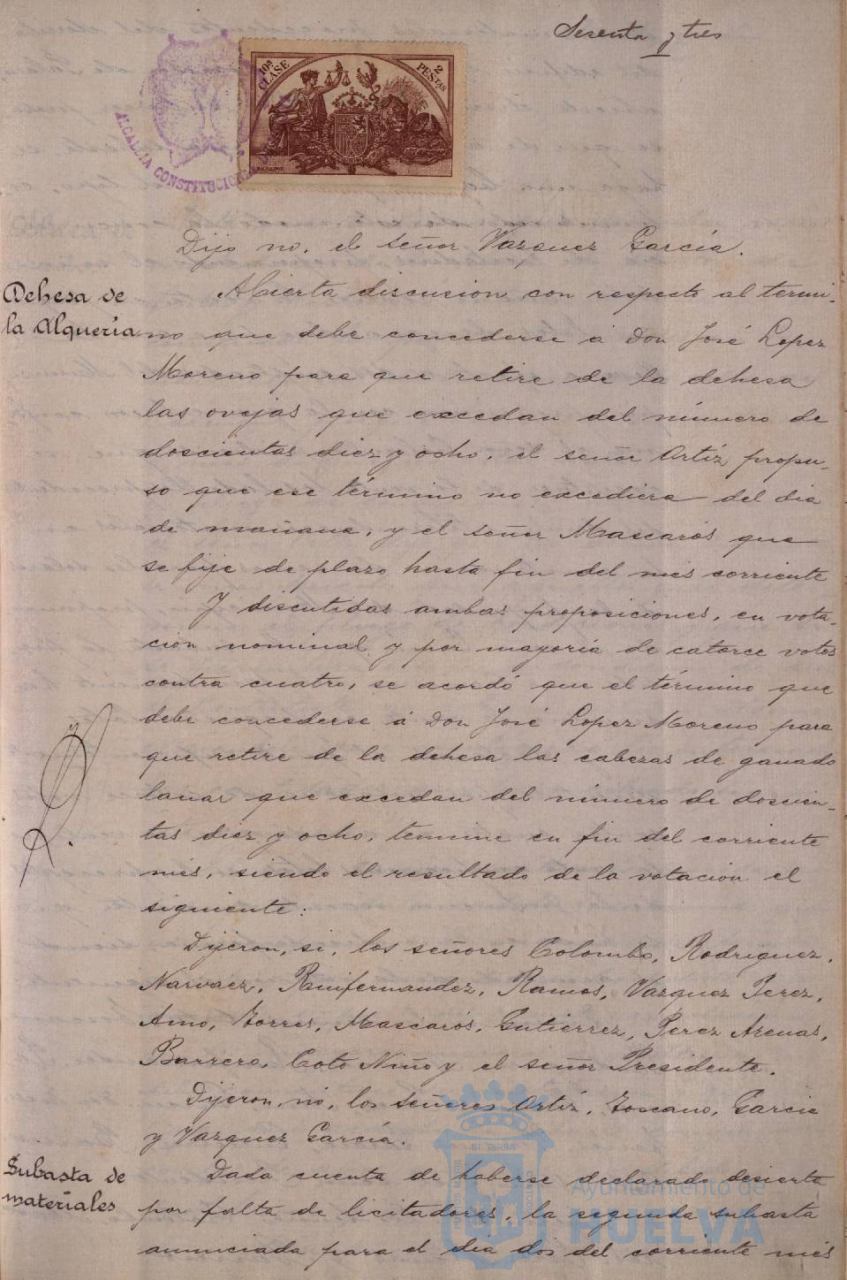 Sesenta y tres
10ª CLASE
2 PESETAS
ALCALDIA CONSTITUCIONAL
Dijo no, el señor Vazquez García.
Dehesa de
la Alquería
Abierta discusion con respecto al termi-
no que debe concederse á Don José Lopez
Moreno para que retire de la dehesa
las ovejas que excedan del número de
doscientas diez y ocho, el señor Ortíz propu-
so que ese término no excediera del dia
de mañana, y el señor Mascarós que
se fije de plazo hasta fin del mes corriente
Y discutidas ambas proposiciones, en vota-
cion nominal y por mayoría de catorce votos
contra cuatro, se acordó que el término que
debe concederse á Don José Lopez Moreno para
que retire de la dehesa las cabezas de ganado
lanar que excedan del número de doscien-
tas diez y ocho, termine en fin del corriente
mes, siendo el resultado de la votacion el
siguiente:
Dijeron, si, los señores Colombo, Rodriguez,
Narvaez, Ruifernandez, Ramos, Vazquez Perez,
Amo, Torres, Mascarós, Gutierrez, Perez Arenas,
Barrero, Coto Niño y el señor Presidente.
Dijeron, no, los señores Ortíz, Toscano, Garcia
y Vazquez García.
Subasta de
materiales
Dada cuenta de haberse declarado desierta
por falta de licitadores, la segunda subasta
anunciada para el dia dos del corriente mes
Ayuntamiento de
HUELVA